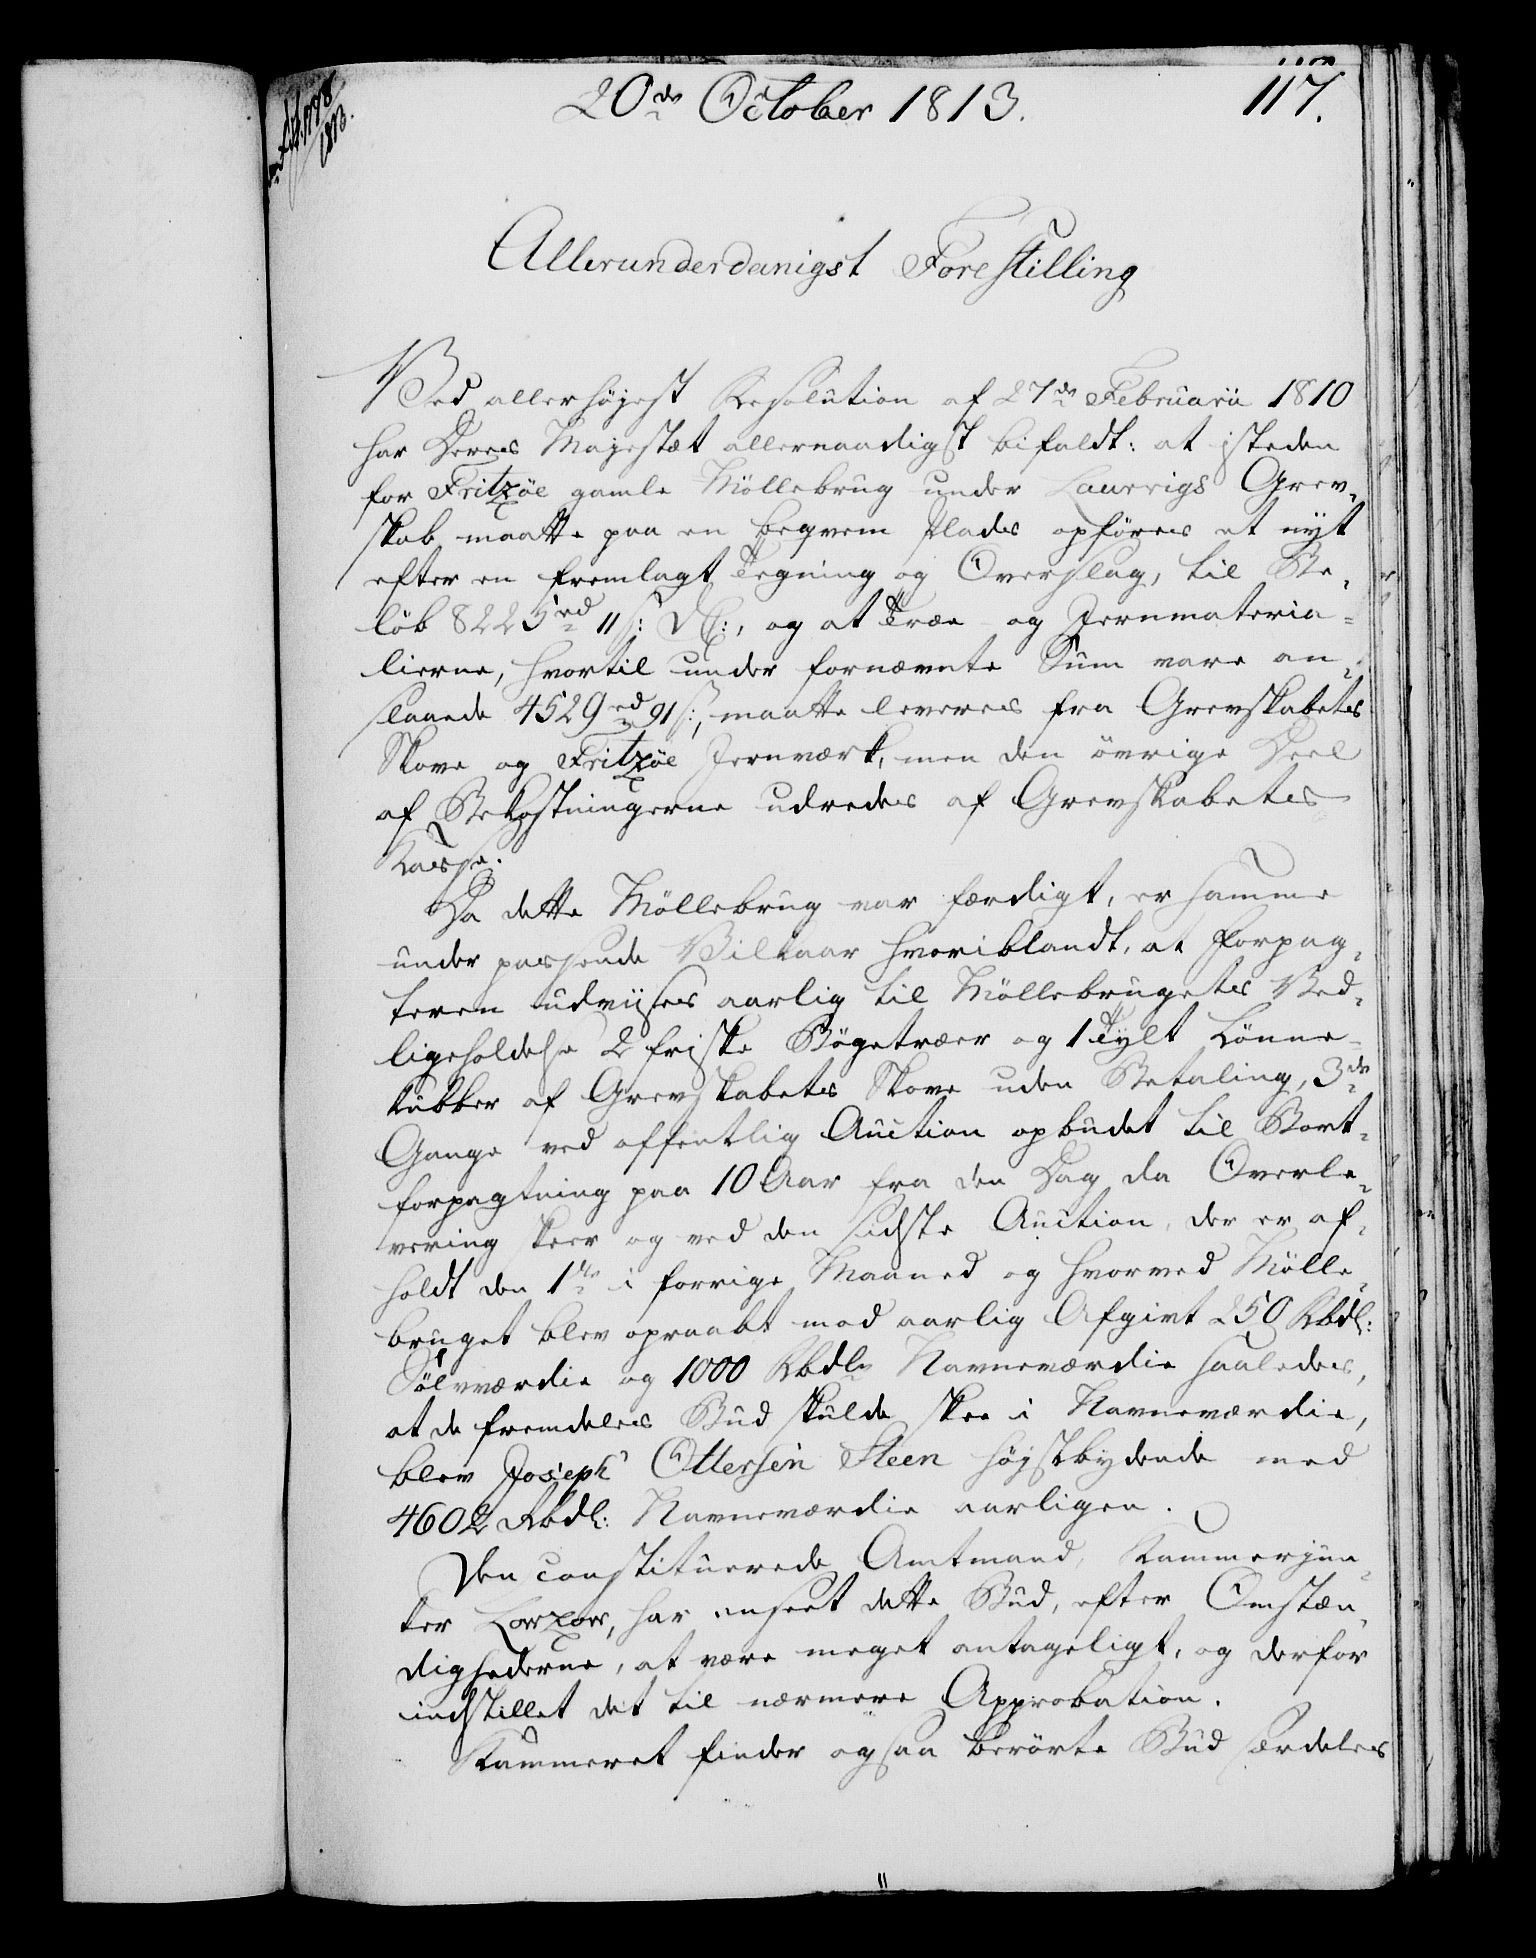 20de October 1813.
117.
1798
1813.
Allerunderdanigst Forestilling
Ved allerhøjest Resolution af 27de Februarii 1810
har Deres Majestæt allernaadigst bifaldt: at isteden
for Fritzøe gamle Möllebrug under Laurvigs Grev-
skab maatte paa en beqvem Plads opföres et nyt
efter en fremlagt Tegning og Overslag, til Be-
löb 8225rd 11 s: DC:, og at Træe- og Jernmateria-
lierne, hvortil under fornævnte Sum vare an-
slaaede 4529rd 91 s:, maatte leveres fra Grevskabets
Skove og Fritzöe Jernværk, men den övrige Deel
af Bekostningerne udredes af Grevskabets
Kasse.
Da dette Möllebrug var færdigt, er samme
under passende Vilkaar hvoriblandt, at Forpag-
teren udviises aarlig til Möllebrugets Ved-
ligeholdelse 2 friske Bögetræer og 1 Tylt Lönne-
kubber af Grevskabets Skove uden Betaling, 3de
Gange ved offentlig Auction opbudet til Bort-
forpagtning paa 10 Aar fra den Dag da Overle-
vering skeer og ved den sidste Auction, der er af-
holdt den 1te i forrige Maaned og hvorved Mölle-
bruget blev opraabt med aarlig Afgivt 250 Rbdl:
Sölvværdie og 1000 Rbdlr Navneværdie saaledes,
at de fremdeles Bud skulde skee i Navneværdie,
blev Joseph Ottersen Steen højstbydende med
4602 Rbdl: Navneværdie aarligen.
Den constituerede Amtmand, Kammerjun-
ker Lowzow, har anseet dette Bud, efter Omstæn-
dighederne, at være meget antageligt, og derfor
indstillet det til nærmere Approbation.
Kammeret finder ogsaa berörte Bud særdeles